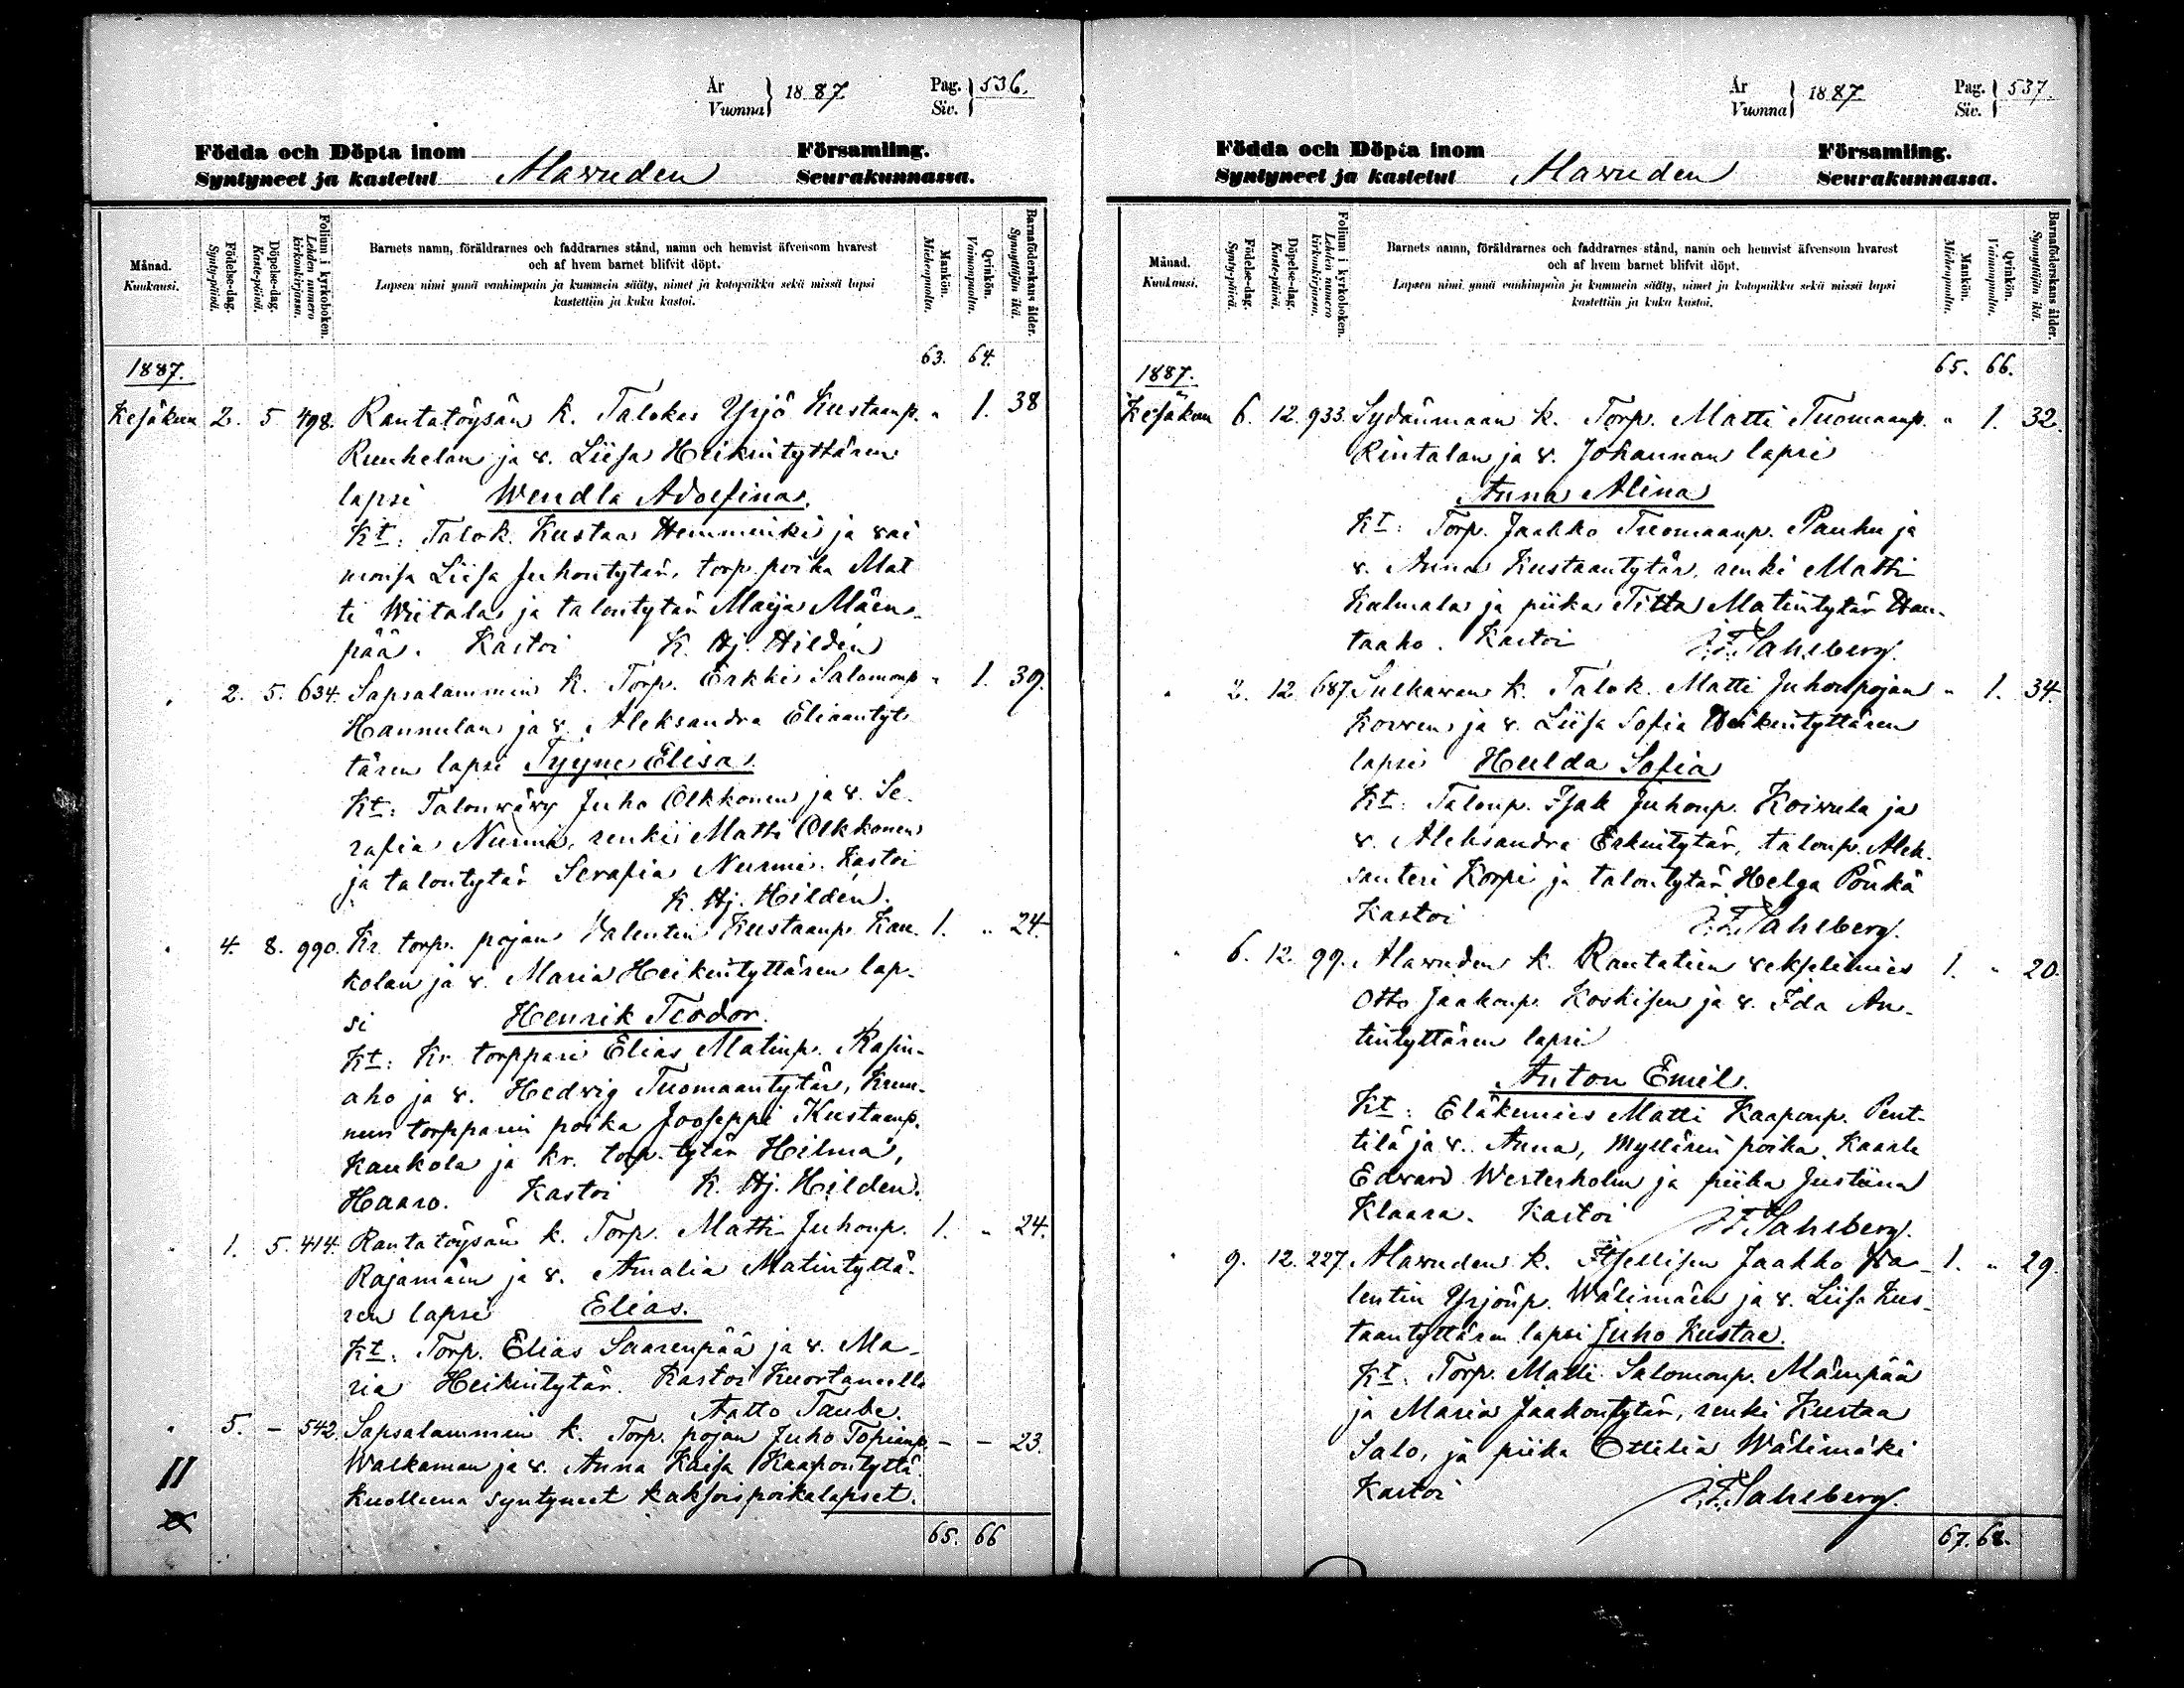 År
Vuonna } 1887. Pag.
Siv. } 536.
Födda och Döpta inom Församling.
Syntyneet ja kastetut Alavuden Seurakunnassa.
Månad.
Kuukausi.
Födelse-dag.
Synty-päivä.
Döpelse-dag.
Kaste-päivä.
Folium i kyrkoboken.
Lehden numero
kirkonkirjassa.
Barnets namn, föräldrarnes och faddrarnes stånd, namn och hemvist äfvensom hvarest
och af hvem barnet blifvit döpt.
Lapsen nimi ynnä vanhimpain ja kummein sääty, nimet ja kotopaikka sekä missä lapsi
kastettiin ja kuka kastoi.
Mankön.
Miehenpuolta.
Qvinkön.
Vaimonpuolta.
Barnaföderskans ålder.
Synnyttäjän ikä.
1887. 63. 64.
Kesäkuu 2. 5 498. Rantatöysän k. Talokas Yrjö Kustaanp. " 1. 38
Ruuhelan ja v. Liisa Heikintyttären
lapsi Wendla Adolfina.
Kt: Talok. Kustaa Hemminki ja vai
monsa Liisa Juhontytär, torp. poika Mat
ti Wiitala ja talontytär Maija Mäen-
pää. Kastoi K. Hj. Hildén
" 2. 5. 634. Sapsalammin k. Torp. Erkki Salomonp. " 1. 39.
Hannulan ja v. Aleksandra Eliaantyt
tären lapsi Tyyne Elisa.
Kt: Talonvävy Juho Olkkonen ja v. Se-
rafia Nurmi, renki Matti Olkkonen
ja talontytär Serafia Nurmi. Kastoi
K. Hj. Hildén.
" 4. 8. 990. Kr. torp. pojan Valentin Kustaanp. Kau- 1. " 24.
kolan ja v. Maria Heikintyttären lap-
si Henrik Teodor.
Kt: Kr. torppari Elias Matinp. Rasin-
aho ja v. Hedvig Tuomaantytär, Kruu-
nun torpparin poika Jooseppi Kustaanp.
Kaukola ja kr. torp. tytär Hilma,
Haaro. Kastoi K. Hj. Hildén.
" 1. 5. 414. Rantatöysän k. Torp. Matti Juhonp. 1. " 24.
Rajamäen ja v. Amalia Matintyttä-
ren lapsi Elias.
Kt: Torp. Elias Saarenpää ja v. Ma-
ria Heikintytär. Kastoi Kuortaneella
Aatto Taube.
" 5. - 542. Sapsalammin k. Torp. pojan Juho Topianp. - - 23.
Walkaman ja v. Anna Kaisa Kaapontyttä.
II Kuolleena syntyneet kaksoispoikalapset.
65. 66
År
Vuonna } 1887. Pag.
Siv. } 537.
Födda och Döpta inom Församling.
Syntyneet ja kastetut Alavuden Seurakunnassa.
Månad.
Kuukausi.
Födelse-dag.
Synty-päivä.
Döpelse-dag.
Kaste-päivä.
Folium i kyrkoboken.
Lehden numero
kirkonkirjassa.
Barnets namn, föräldrarnes och faddrarnes stånd, namn och hemvist äfvensom hvarest
och af hvem barnet blifvit döpt.
Lapsen nimi ynnä vanhimpain ja kummein sääty, nimet ja kotopaikka sekä missä lapsi
kastettiin ja kuka kastoi.
Mankön.
Miehenpuolta.
Qvinkön.
Vaimonpuolta.
Barnaföderskans ålder.
Synnyttäjän ikä.
1887. 65. 66.
Kesäkuu 6. 12. 933. Sydänmaan k. Torp. Matti Tuomaanp. " 1. 32.
Rintalan ja v. Johannan lapsi
Anna Alina
Kt: Torp. Jaakko Tuomaanp. Pauhu ja
v. Anna Kustaantytär, renki Matti
Kulmala ja piika Titta Matintytär Hau-
taaho. Kastoi J. F. Sahlberg.
" 2. 12. 687. Sulkaven k. Talok. Matti Juhonpojan " 1. 34.
Korven ja v. Liisa Sofia Heikintyttären
lapsi Hulda Sofia
Kt: Talonp. Isak Juhonp. Koivula ja
v. Aleksandra Erkintytär, talonp. Alek-
santeri Korpi ja talontytär Helga Pönkä
Kastoi J. F. Sahlberg.
" 6. 12. 99. Alavuden k. Rautatien vekselimies 1. " 20.
Otto Jaakonp. Koskisen ja v. Ida An-
tintyttären lapsi
Anton Emil.
Kt: Eläkemies Matti Kaaponp. Pent-
tilä ja v. Anna, Myllärin poika Kaarle
Edvard Westerholm ja piika Justiina
Klaara. Kastoi J. F. Sahlberg.
" 9. 12. 227. Alavuden k. Itsellisen Jaakko Wa- 1. " 29.
lentin Yrjönp. Wälimäen ja v. Liisa Kus-
taantyttären lapsi Juho Kustaa.
Kt. Torp. Matti Salomonp. Mäenpää
ja Maria Jaakontytär, renki Kustaa
Salo, ja piika Ottilia Wälimäki
Kastoi J. F. Sahlberg.
67. 68.